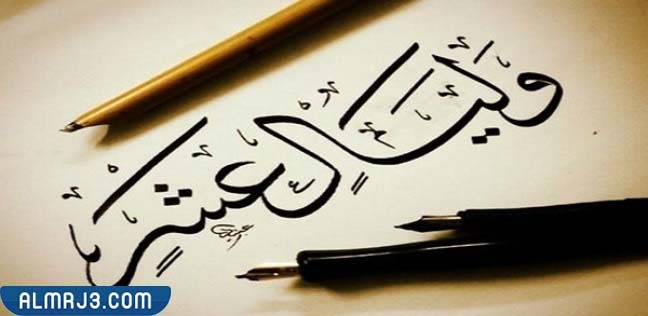 وَلَيَالٍ عَشْرٍ
ALMRJ3.COM